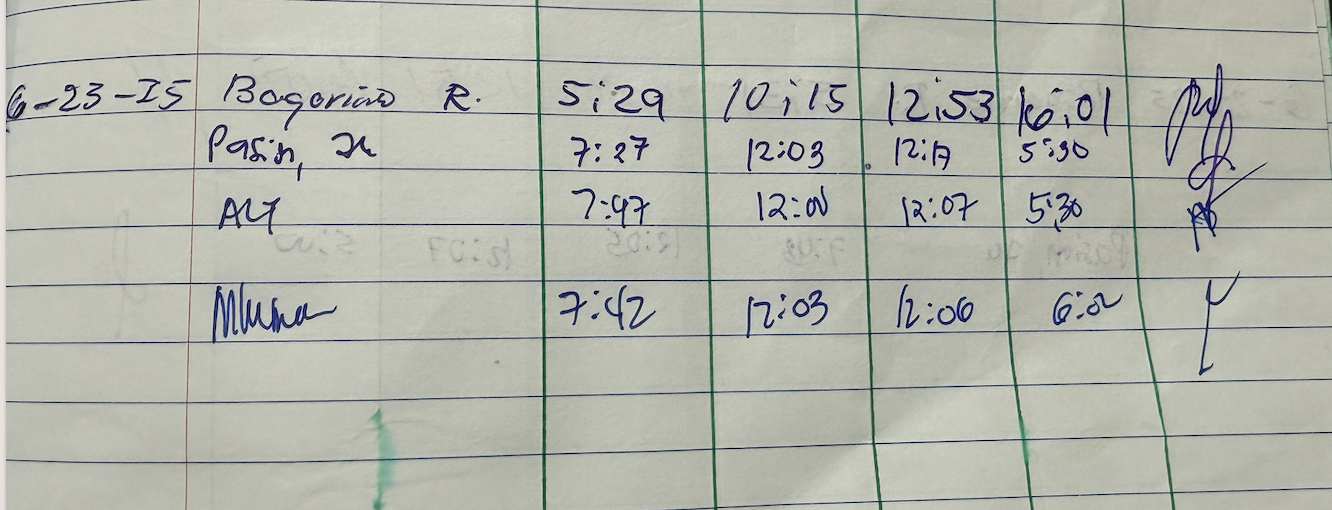 6-23-25 Bagorino R. 5:29 10:15 12:53 16:01
Pasin, 7:27 12:03 12:17 5:30
ALT 7:47 12:00 12:07 5:30
7:42 12:03 12:06 6:02